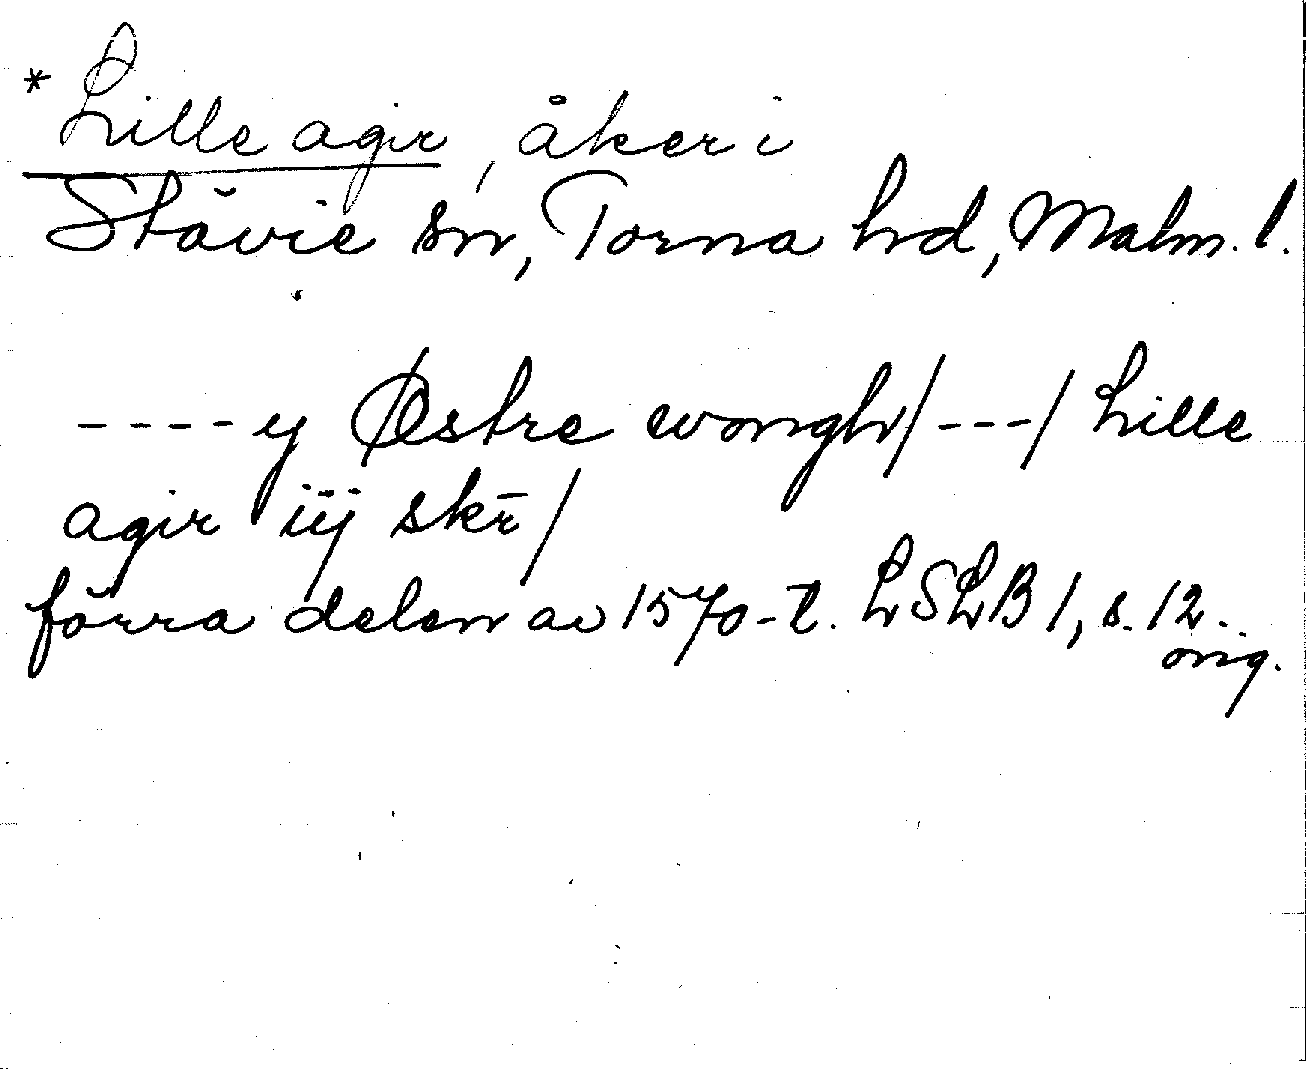 * Lille agir, åker i
Stävie sn, Torna hd, Malm. l.
----y Østre wongh/---/ Lille
agir iij skr̄/
förra delen av 1570-t. LSLB 1, s. 12.
orig.